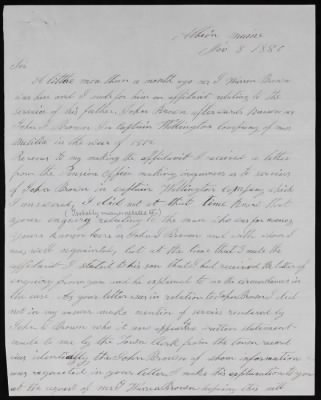 Albion Maine
Nov 8 1880
Sir
A little more than a month ago Mr J Warren Brown
was here and I made for him an affidavit relating to the
service of his father, John Brown afterwards known as
John J Brown in Captain Wellington Company of mass
Militia in the war of 1812.
Previous to my making the affidavit I received a letter
from the Pension Office making inquiries as to services
of John Brown in captain Wellington company which
I answered. I did not at that time know that
your enquiry related to the man who was for many
years known here as John J Brown and with whom I
was well acquainted, but at the time that I made the
affidavit I stated to his son that I had received the letter of
enquiry from you and he explained to me the circumstances in
the case. As your letter was in relation to John Brown I did
not in my answer make mention of service rendered by
John Brown who it now appears written statement
made to me by the Town Clerk from the town record
was identically the John Brown of whom information
was requested in your letter. I make this explanation to you
at the request of Mr J Warren Brown hoping this will